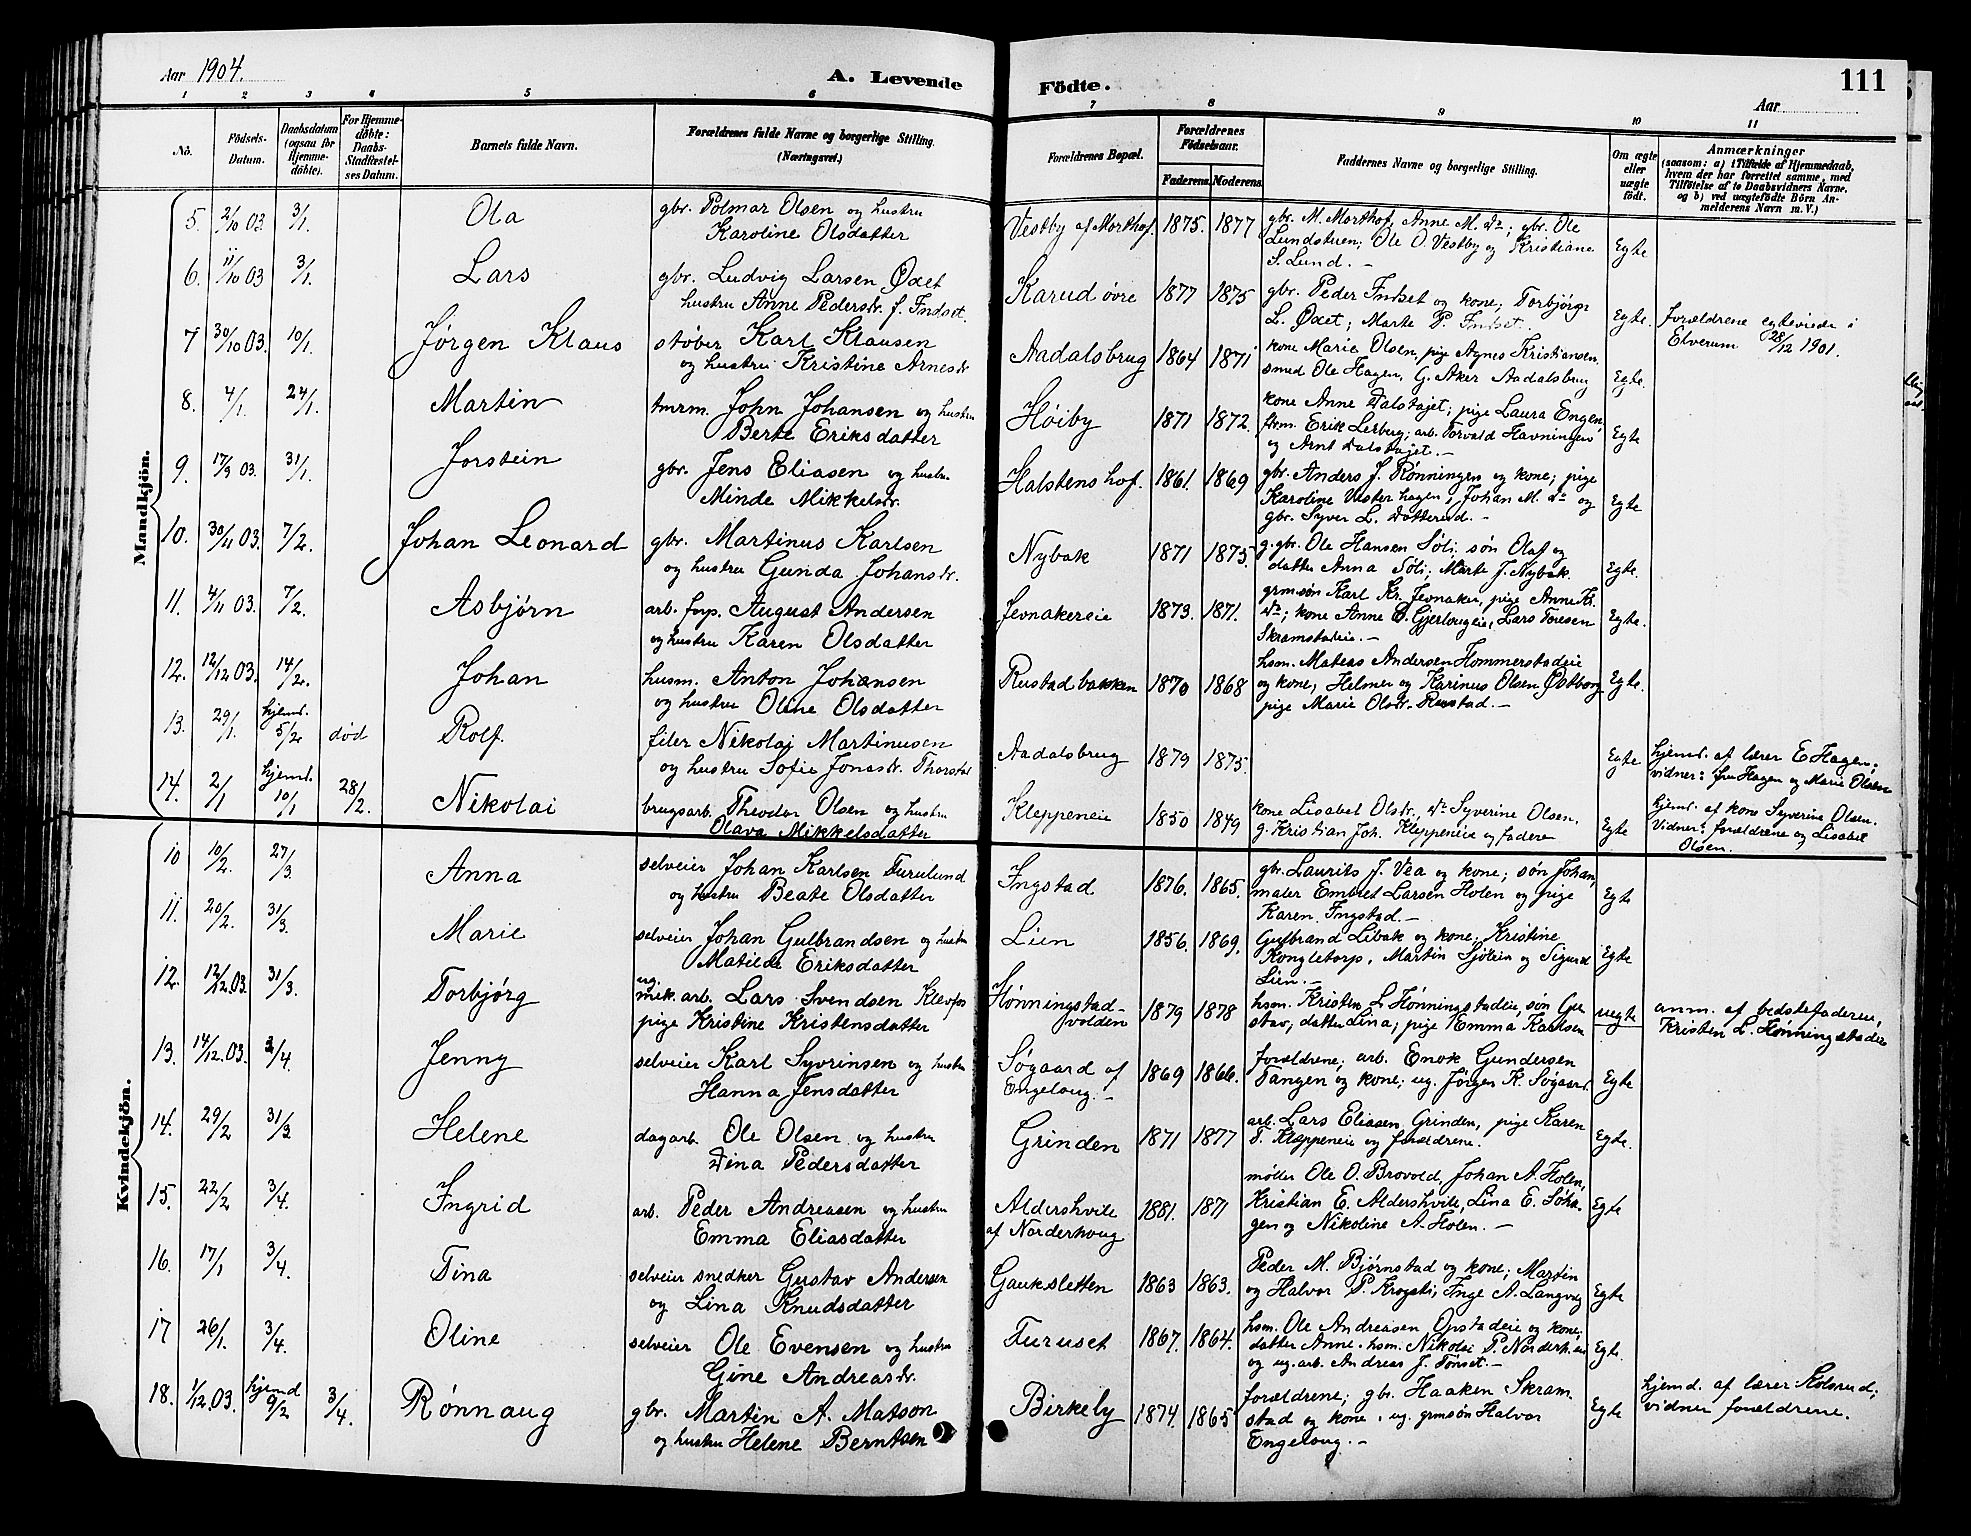 Aar 1904.
A. Levende
Födte.
111
Aar
1 2 3 4 5 6 7 8 9 10 11
No.
Födsels-Datum.
Daabsdatum (ogsaa for Hjemme-döbte).
For Hjemme-döbte: Daabs-Stadfæstel-ses Datum.
Barnets fulde Navn.
Forældrenes fulde Navne og borgerlige Stilling. (Næringsvei.)
Forældrenes Bopæl.
Forældrenes Födselsaar.
Faderens. Moderens.
Faddernes Navne og borgerlige Stilling.
Om ægte eller uægte födt.
Anmærkninger
(saasom: a) i Tilfælde af Hjemmedaab,
hvem der har forrettet samme, med
Tilföielse af to Daabsvidners Navne.
og b) ved uægtefödte Börn An-
melderens Navn m. V.)
Mandkjön.
5. 2/10 03. 3/1. Ola gbr. Polmar Olsen og hustru
Karoline Olsdatter
Vestby af Morthof. 1875. 1877 gbr. M. Morthof, Anne M. do; gbr. Ole
Lundstuen; Ole O. Vestby og Kristiane
S. Lund. - Egte
6. 11/10 03 3/1. Lars gbr. Ludvig Larsen Oxet
hustru Anne Pedersdr. f. Indset.
Karud øvre 1877 1875 gbr. Peder Indset og kone; Torbjörg
L. Oxet; Marte P. Indset. Egte.
7 30/10 03. 10/1. Jørgen Klaus støber Karl Klausen
og hustru Kristine Arnesdr.
Aadalsbrug 1864 1871 kone Marie Olsen, pige Agnes Kristiansen,
smed Ole Hagen, G. Aker Aadalsbrug Egte.
forældrene egteviede i
Elverum 28/12 1901.
8. 4/1. 24/1. Martin tmrm. John Johansen og hustru
Berte Eriksdatter
Høiby 1871 1872. kone Anne Dalstøjet; pige Laura Engen,
Erik Lerberg; arb. Torvald Havningen
og Arnt Dalstøjet. - Egte
9. 17/9 03. 31/1. Jorstein gbr. Jens Eliasen og hustru
Minde Mikkelsdr.
Halstenshof. 1861. 1869 gbr. Anders J. Rønningen og kone; pige
Karoline Vesterhagen, Johan M. do og
gbr. Syver L. Dotterud. - Egte
10. 30/11 03. 7/2. Johan Leonard gbr. Martinus Karlsen
og hustru Gunda Johansdr.
Nybak 1871 1875. g. gbr. Ole Hansen Söli, søn Olaf og
datter Anna Söli; Marte J. Nybak. Egte.
11. 4/11 03. 7/2. Asbjørn arb. forp. August Andersen
og hustru Karen Olsdatter
Jevnakereie 1873. 1871. grmsøn Karl Kr. Jevnaker, pige Anne Kr.
do; kone Anne O. Gjerlougeie, Lars Toresen
Skramstadeie. - Egte.
12. 12/12 03. 14/2. Johan husm. Anton Johansen
og hustru Oline Olsdatter
Rustadbakken 1870 1868 hsm. Mateas Andersen Hommerstadeie
og kone, Helmer og Karinus Olsen Østborg
pige Marie Olsdr. Rustad. - Egte.
13. 29/1. hjemd. 5/2 död Rolf. filer Nikolai Martinusen
og hustru Sofie Jonasdr. Thorstad
Aadalsbrug 1879 1875. Egte
hjemd. af lærer E. Hagen;
vidner: fru Hagen og Marie Olsen
14. 2/1 hjemd. 10/1 28/2. Nikolai brugsarb. Theodor Olsen og hustru
Olava Mikkelsdatter
Kleppeneie 1850 1849 kone Lisabet Olsdr, do Syverine Olsen,
g. Kristian Joh. Kleppeneie og fadere Egte
hjemd. af kone Syverine Olsen.
Vidner: forældrene og Lisabet
Olsen.
Kvindekjön.
10 10/2. 27/3. Anna selveier Johan Karlsen Furulund
og hustru Beate Olsdatter
Ingstad 1876. 1865. gbr. Laurits J. Vea og kone; søn Johan,
maler Embret Larsen Holen og pige
Karen Ingstad. - Egte
11. 20/2. 31/3. Marie selveier Johan Gulbrandsen og hustru
Matilde Eriksdatter
Lien 1856. 1869. Gulbrand Libak og kone; Kristine
Kongletorp, Martin Sjölien og Sigurd
Lien. - Egte
12. 12/12. 03. 31/3. Torbjørg ug. mek. arb. Lars Svendsen Klevfos
pige Kristine Kristensdatter
Hønningstad-
volden 1879 1878 hsm. Kristen L. Hønningstadeie, søn Gu-
stav, datter Lina, pige Emma Karlsen uegte
anm. af bedstefaderen,
Kristen L. Hønningstadeie
13. 14/12. 03. 3/4. Jenny selveier Karl Syvrinsen og hustru
Hanna Jensdatter
Søgaard af
Engeloug. - 1869 1866. forældrene; arb. Enok Gundersen
Tangen og kone; ug. Jörgen K. Søgaard. Egte
14. 29/2 31/3 Helene dagarb. Ole Olsen og hustru
Dina Pedersdatter
Grinden 1871 1877 arb. Lars Eliasen Grinden, pige Karen
T. Kleppeneie og forældrene. Egte.
15. 22/2 3/4. Ingrid arb. Peder Andreasen og hustru
Emma Eliasdatter
Aldershvile
af Norderhoug 1881. 1871 møller Ole O. Brovold, Johan A. Holen,
Kristian E. Aldershvile, Lina E. Søha-
gen og Nikoline A. Holen. - Egte
16. 17/1 3/4. Tina selveier snedker Gustav Andersen
og Lina Knudsdatter
Gaukssletten 1863 1863. Peder M. Bjørnstad og kone; Martin
og Halvor P. Krogsti, Inge A. Langveg Egte
17 26/1. 3/4. Oline selveier Ole Evensen og hustru
Gine Andreasdr.
Furuset 1867. 1864. hsm. Ole Andreasen Opstadeie og kone,
datter Anne, hsm. Nikolai P. Norderh.
og ug. arb. Andreas J. Tønset. - Egte.
18. 1/12. 03. hjemd 9/2 3/4. Rønnaug gbr. Martin A. Matson
og hustru Helene Berntsen
Birkely 1874. 1865 forældrene; gbr. Haaken Skram-
stad og kone, ug. grmsøn Halvor
Engeloug. - Egte
hjemd. af lærer Kolsrud;
vidner forældrene.